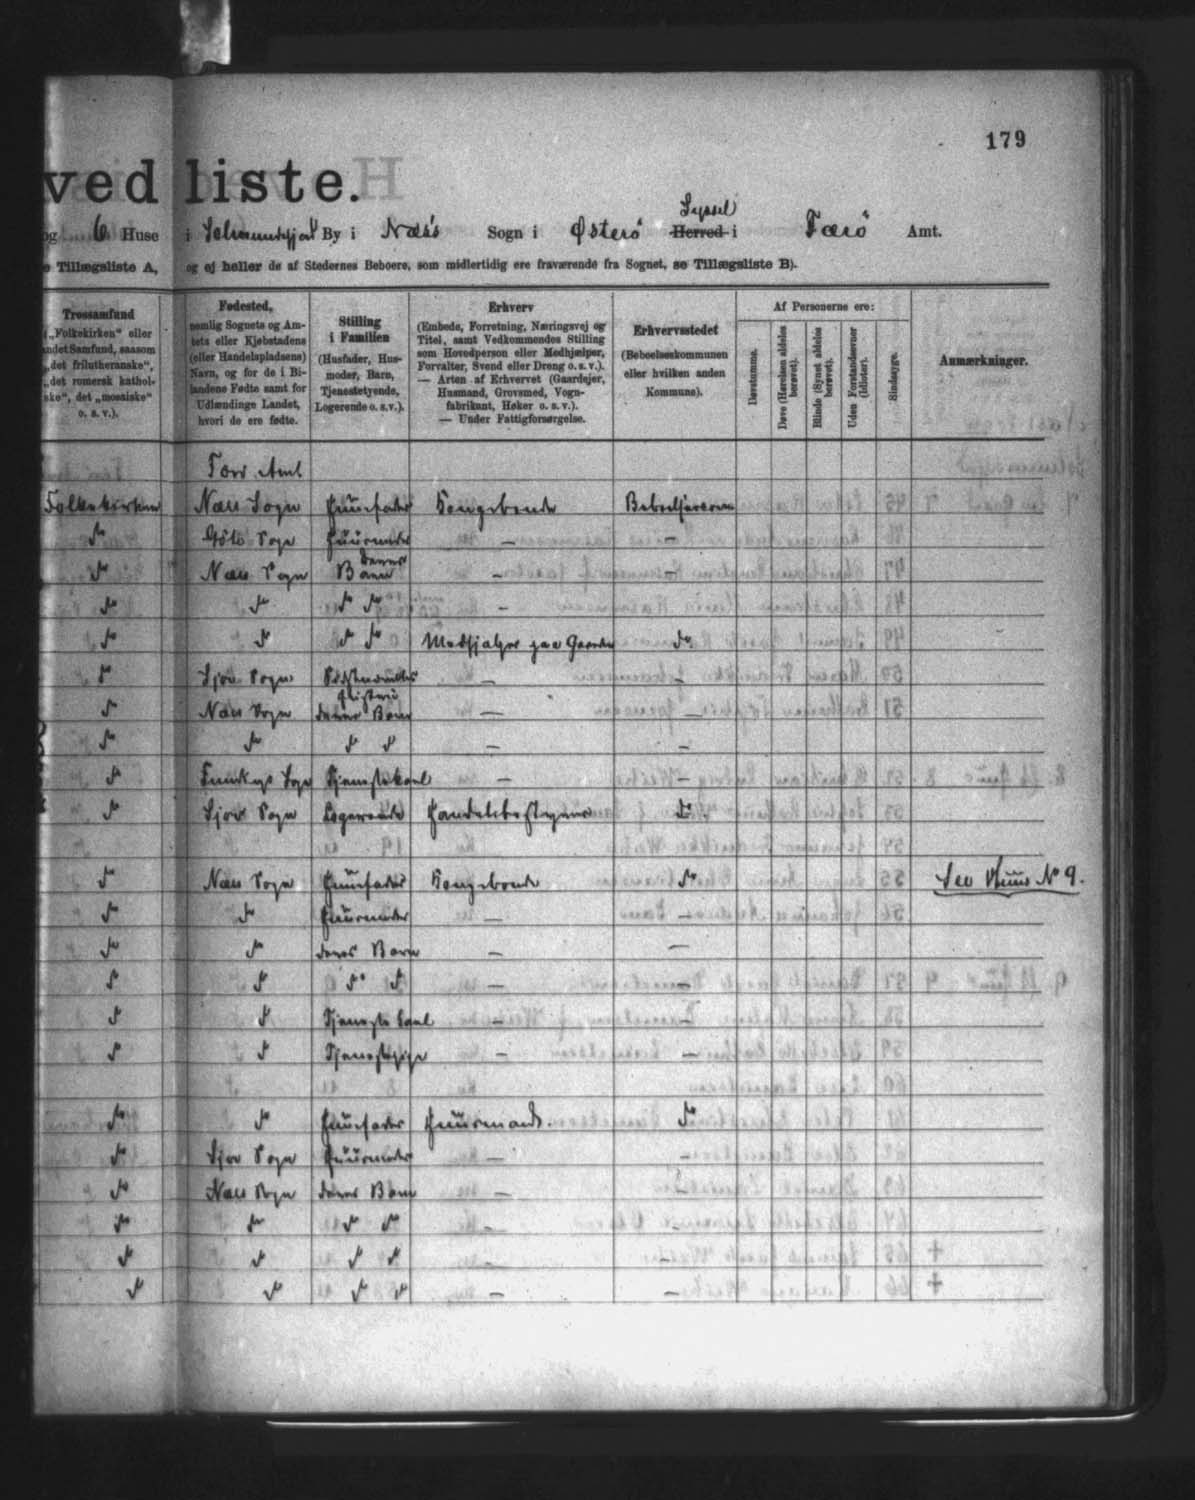 179
ved liste.
og 6 Huse i By i Næs's Sogn i Østerö Syssel Herred i Færö Amt.
Tillægsliste A, og ej heller de af Stedernes Beboere, som midlertidig ere fraværende fra Sognet, se Tillægsliste B).
Trossamfund
(„Folkekirken“ eller
andet Samfund, saasom
„det frilutheranske“,
„det romersk kathol-
ske“, det „mosaiske“
o. s. v.).
Fødested,
nemlig Sognets og Am-
tets eller Kjøbstadens
(eller Handelspladsens)
Navn, og for de i Bi-
landene Fødte samt for
Udlændinge Landet,
hvori de ere fødte.
Stilling
i Familien
(Husfader, Hus-
moder, Barn,
Tjenestetyende,
Logerende o. s. v.).
Erhverv
(Embede, Forretning, Næringsvej og
Titel, samt Vedkommendes Stilling
som Hovedperson eller Medhjælper,
Forvalter, Svend eller Dreng o. s. v.).
— Arten af Erhvervet (Gaardejer,
Husmand, Grovsmed, Vogn-
fabrikant, Høker o. s. v.).
— Under Fattigforsørgelse.
Erhvervsstedet
(Beboelseskommunen
eller hvilken anden
Kommune).
Af Personerne ere:
Døvstumme.
Døve (Hørelsen aldeles
berøvet).
Blinde (Synet aldeles
berøvet).
Uden Forstandsevner
(Idioter).
Sindssyge.
Anmærkninger.
Færö Amt
Folkekirken Næs Sogn Huusfader Kongsbonde
do Göte Sogn Huusmoder — —
do Næs Sogn deres Børn — —
do do do do —
do do do do Medhjælper paa Gaarden do
do Sjov Sogn — —
do Næs Sogn deres Barn — —
do do do do — —
do Sogn Tjenestekarl — —
do Sjov Sogn Logerende Handelsbestyrer do
do Næs Sogn Huusfader Kongsbonde do See Huus No 9.
do do Huusmoder — —
do do deres Børn — —
do do do do — —
do do Tjenestekarl — —
do do Tjenestepige — —
do do Huusfader Huusmand. do
do Sjov Sogn Huusmoder — —
do Næs Sogn deres Børn — —
do do do do — —
do do do do — —
do do do do — —